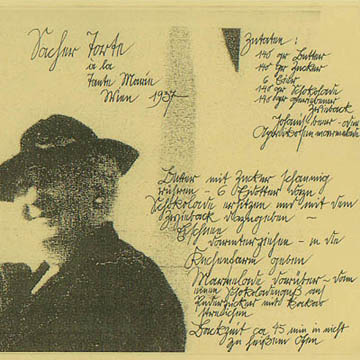 Sacher Torte
à la
Tante Marie
Wien 1937
Zutaten :
140 gr Butter
140 gr Zucker
6 Eier
140 gr Schokolade
140 gr geriebener
Zwieback
Johannisbeer - oder
Aprikosenmarmelade
Butter mit Zucker schaumig
rühren - 6 Eidotter dazu
Schokolade erhitzen und mit dem
Zwieback dazugeben -
Schnee
darunterziehen - in die
Kuchenform geben
Marmelade darüber - dann
einen Schokoladenguß aus
Puderzucker mit Kakao
streichen
Backzeit ca 45 min in nicht
zu heißem Ofen